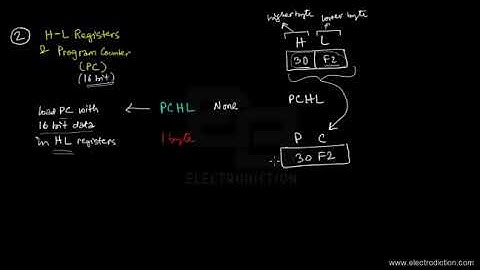 2 H-L Registers
& Program Counter
(PC)
(16 bit)
higher byte lower byte
H L
30 F2
load PC with
16 bit data
in HL registers
PCHL None
1 byte
PCHL
P C
30 F2
ELECTRODICTION
www.electrodiction.com